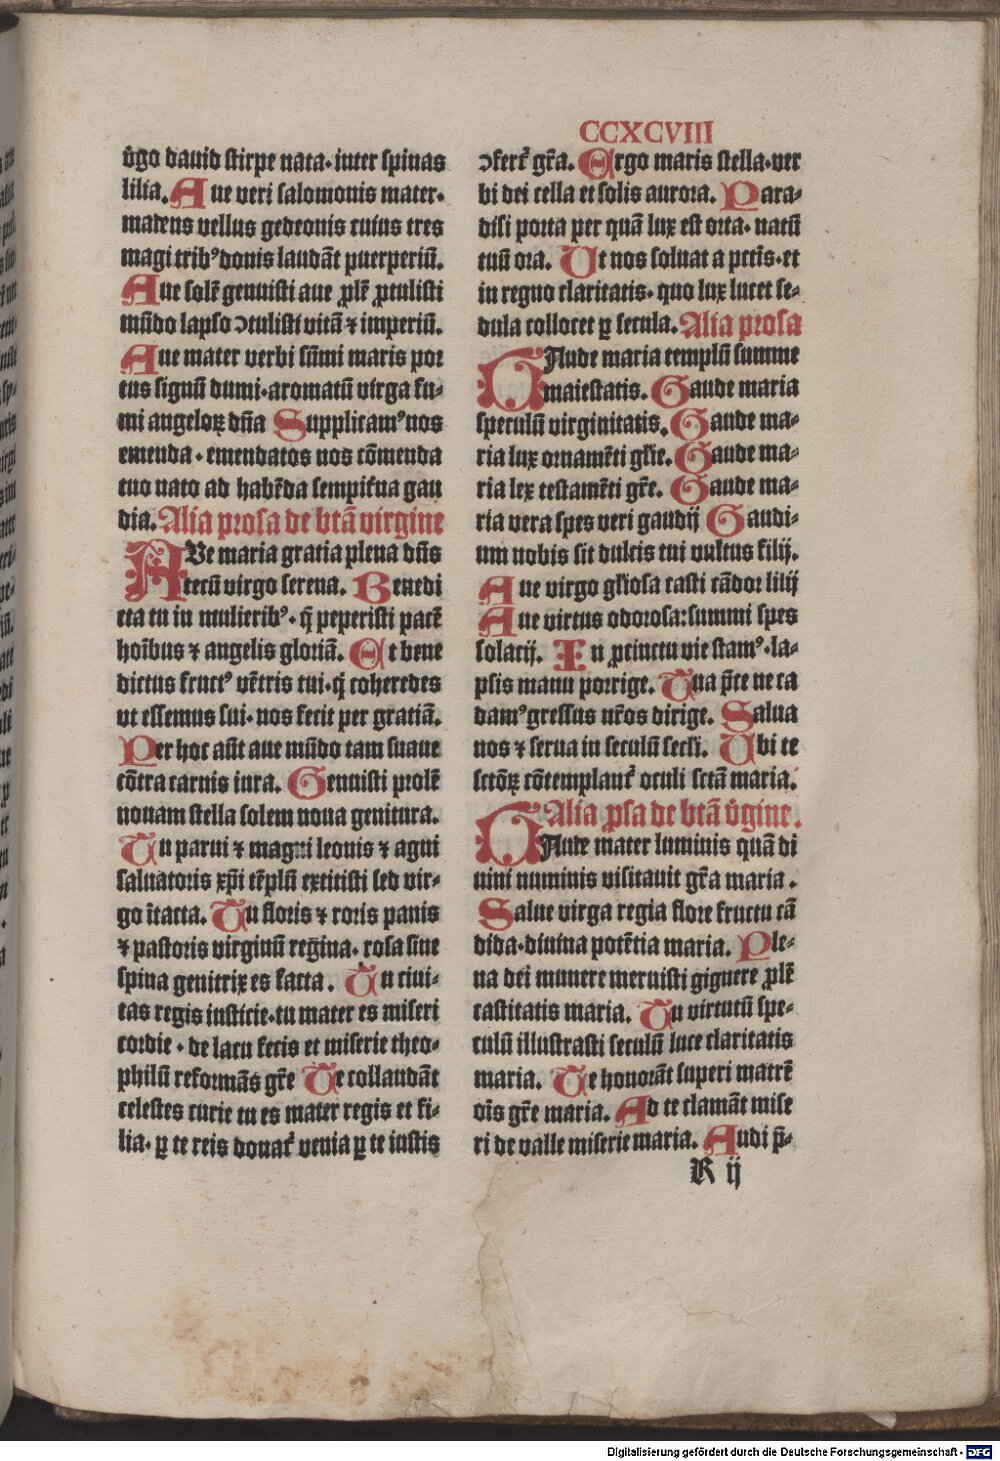 CCXCVIII
v̄go dauid stirpe nata· inter spinas
lilia. Aue veri salomonis mater·
madens vellus gedeonis cuius tres
magi tribꝰ donis laudāt puerperiū.
Aue solē genuisti aue ꝓlē ꝓtulisti
mūdo lapso ꝯtulisti vitā ⁊ imperiū.
Aue mater verbi sūmi maris por
tus signū dumi·aromatū virga fu-
mi angeloꝝ dn̄a Supplicamꝰ nos
emenda· emendatos nos cōmenda
tuo nato ad habēda sempit̄na gau
dia. Alia prosa de btā virgine
AVe maria gratia plena dn̄s
tecū virgo serena. Benedi
cta tu in mulieribꝰ· q̄ peperisti pacē
hoībus ⁊ angelis gloriā. Et bene
dictus fructꝰ vētris tui· q̄ coheredes
vt essemus sui· nos fecit per gratiā.
Per hoc aūt aue mūdo tam suaue
cōtra carnis iura. Genuisti prolē
nouam stella solem noua genitura.
Tu parui ⁊ magni leonis ⁊ agni
saluatoris xp̄i tēplū extitisti sed vir-
go ītacta. Tu floris ⁊ roris panis
⁊ pastoris virginū regina· rosa sine
spina genitrix es facta. Tu ciui-
tas regis iusticie·tu mater es miseri
cordie· de lacu fecis et miserie theo-
philū reformās gr̄e Te collaudāt
celestes curie tu es mater regis et fi-
lia· ꝑ te reis donat̄ venia ꝑ te iustis
ꝯfert̄ gr̄a. Ergo maris stella·ver
bi dei cella et solis aurora. Para-
disi porta per quā lux est orta· natū
tuū ora. Ut nos soluat a pctīs·et
in regno claritatis· quo lux lucet se-
dula collocet ꝑ secula. Alia prosa
GAude maria templū summe
maiestatis. Gaude maria
speculū virginitatis. Gaude ma-
ria lux ornamēti gl̄ie. Gaude ma-
ria lex testamēti gr̄e. Gaude ma-
ria vera spes veri gaudij Gaudi-
um nobis sit dulcis tui vultus filij.
Aue virgo gl̄iosa casti cādor lilij
Aue virtus odorosa:summi spes
solacij. In ꝓcinctu vie stamꝰ· la-
psis manu porrige. Tua p̄ce ne ca
damꝰ gressus nr̄os dirige. Salua
nos ⁊ serua in seculū secl̄i. Ubi te
sctōꝝ cōtemplant̄ oculi sctā maria.
Alia ꝓsa de btā v̄gine.
GAude mater luminis quā di
uini numinis visitauit gr̄a maria.
Salue virga regia flore fructu cā
dida·diuina potētia maria. Ple-
na dei munere meruisti gignere ꝓlē
castitatis maria. Tu virtutū spe-
culū illustrasti seculū luce claritatis
maria. Te honorāt superi matrē
oīs gr̄e maria. Ad te clamāt mise
ri de valle miserie maria. Audi p̄-
R ij
Digitalisierung gefördert durch die Deutsche Forschungsgemeinschaft - DFG